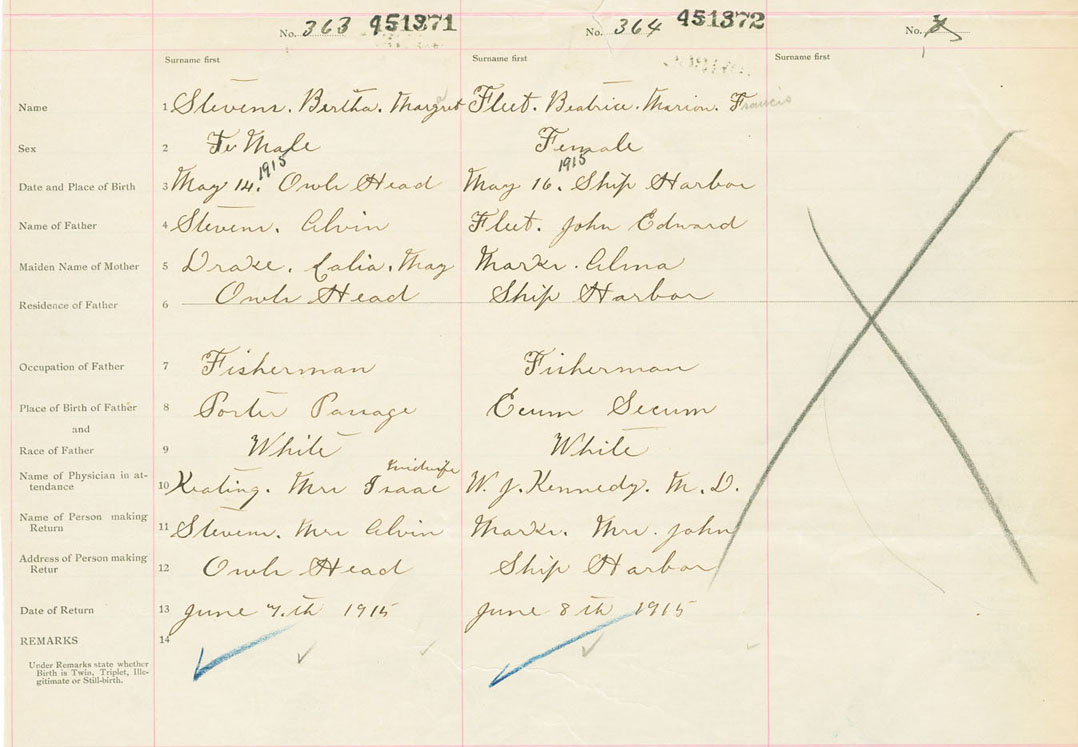 No. 363 451371 No. 364 451372 No.
Surname first Surname first Surname first
Name 1 Stevens. Bertha. Margret Fleet. Beatrice. Marion. Francis
Sex 2 Fe Male Female
1915 1915
Date and Place of Birth 3 May 14. Owls Head May 16. Ship Harbor
Name of Father 4 Stevens. Alvin Fleet. John Edward
Maiden Name of Mother 5 Drake. Calia. May Marks. Alma
Residence of Father 6 Owls Head Ship Harbor
Occupation of Father 7 Fisherman Fisherman
Place of Birth of Father 8 Porter Passage Ecum Secum
and
Race of Father 9 White White
midwife
Name of Physician in at-
tendance 10 Keating. Mrs Isaac W. J. Kennedy. M. D.
Name of Person making
Return 11 Stevens. Mrs Alvin Marks. Mrs. John
Address of Person making
Retur 12 Owls Head Ship Harbor
Date of Return 13 June 7.th 1915 June 8th 1915
REMARKS 14
Under Remarks state whether
Birth is Twin, Triplet, Ille-
gitimate or Still-birth.